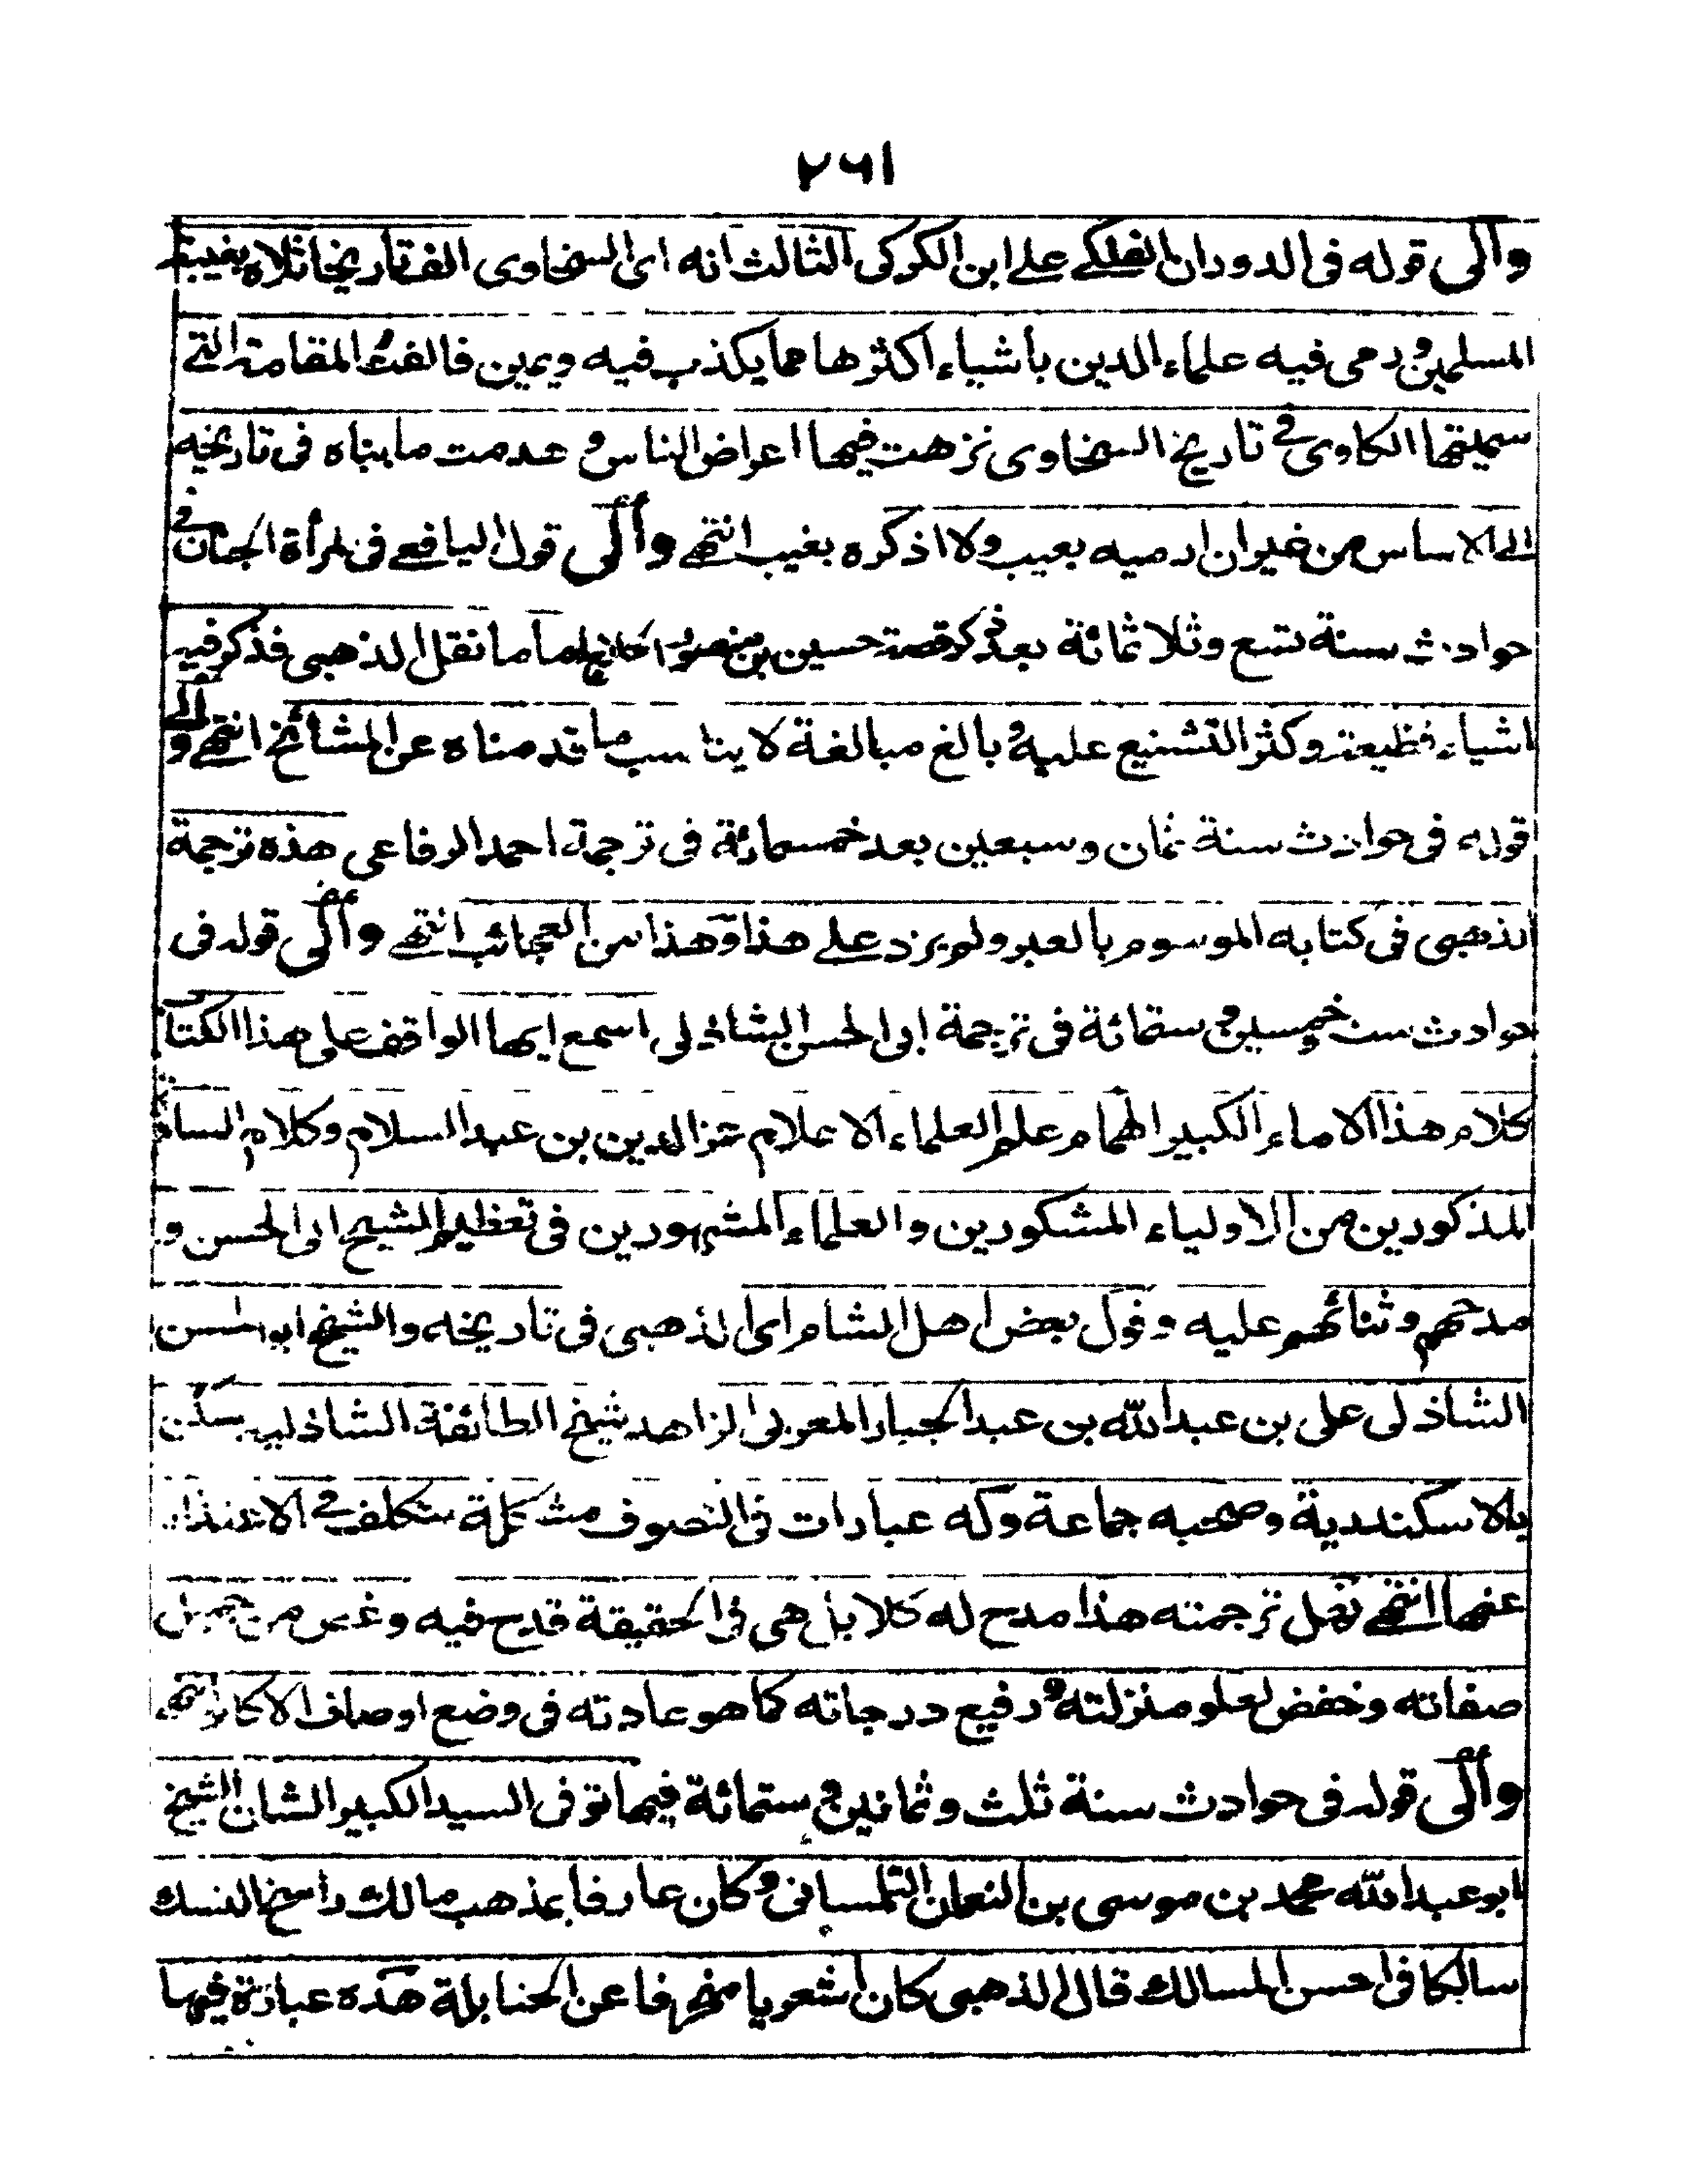 ٢٦١
والى قوله فى الدوران الفلكے علے ابن الكركى الثالث انه اى السخاوى الف تاريخا ثلاه بغيبة
المسلمين ورمى فيه علماء الدين بأشياء اكثرها مما يكذب فيه ويمين فالفت المقامة التے
سميتها الكاوى فے تاريخ السخاوى نزهت فيها اعراض الناس و عدمت ما بناه فى تاريخه
الى الاساس من غير ان ارميه بعيب ولا اذكره بغيب انتهے والى قول اليافعے فى مرأة الجنان فے
حوادث سنة تسع وثلاثمائة بعد ذكر قصة حسين بن منصور الحلاج ما ما نقل الذهبى فذكر فيه
اشياء فظيعة وكثر التشنيع عليه و بالغ مبالغة لا يناسب ما قدمناه عن المشائخ انتهے والى
قوله فى حوادث سنة ثمان وسبعين بعد خمسمائة فى ترجمة احمد الرفاعى هذه ترجمة
الذهبى فى كتابه الموسوم بالعبر ولم يزد علے هذا وهذا من العجائب انتهے والى قوله فى
حوادث ست وخمسين و ستمائة فى ترجمة ابى الحسن الشاذلى اسمع ايها الواقف على هذا الكتاب
كلام هذا الامام الكبير الهمام علم العلماء الاعلام عز الدين بن عبد السلام وكلام السادة
المذكورين من الاولياء المشكورين والعلماء المشهورين فى تعظيم الشيخ ابى الحسن و
مدحهم وثنائهم عليه وقول بعض اهل الشام اى الذهبى فى تاريخه والشيخ ابو الحسن
الشاذلى على بن عبد الله بن عبد الجبار المغربى الزاهد شيخ الطائفة الشاذلية سكن
بالاسكندرية وصحبه جماعة وله عبارات فى التصوف مشكلة تتكلف فے الاعتذار
عنها انتهے نقل ترجمته هذا مدح له كلا بل هى فى الحقيقة قدح فيه وغض من جميل
صفاته وخفض لعلو منزلته و رفيع درجاته كما هو عادته فى وضع اوصاف الاكابر انتهے
والى قوله فى حوادث سنة ثلث وثمانين و ستمائة فيها توفى السيد الكبير الشان الشيخ
ابو عبد الله محمد بن موسى بن النعمان التلمسانى و كان عارفا بمذهب مالك راسخ النسك
سالكا فى احسن المسالك قال الذهبى كان اشعريا منحرفا عن الحنابلة هذه عبارة فيها